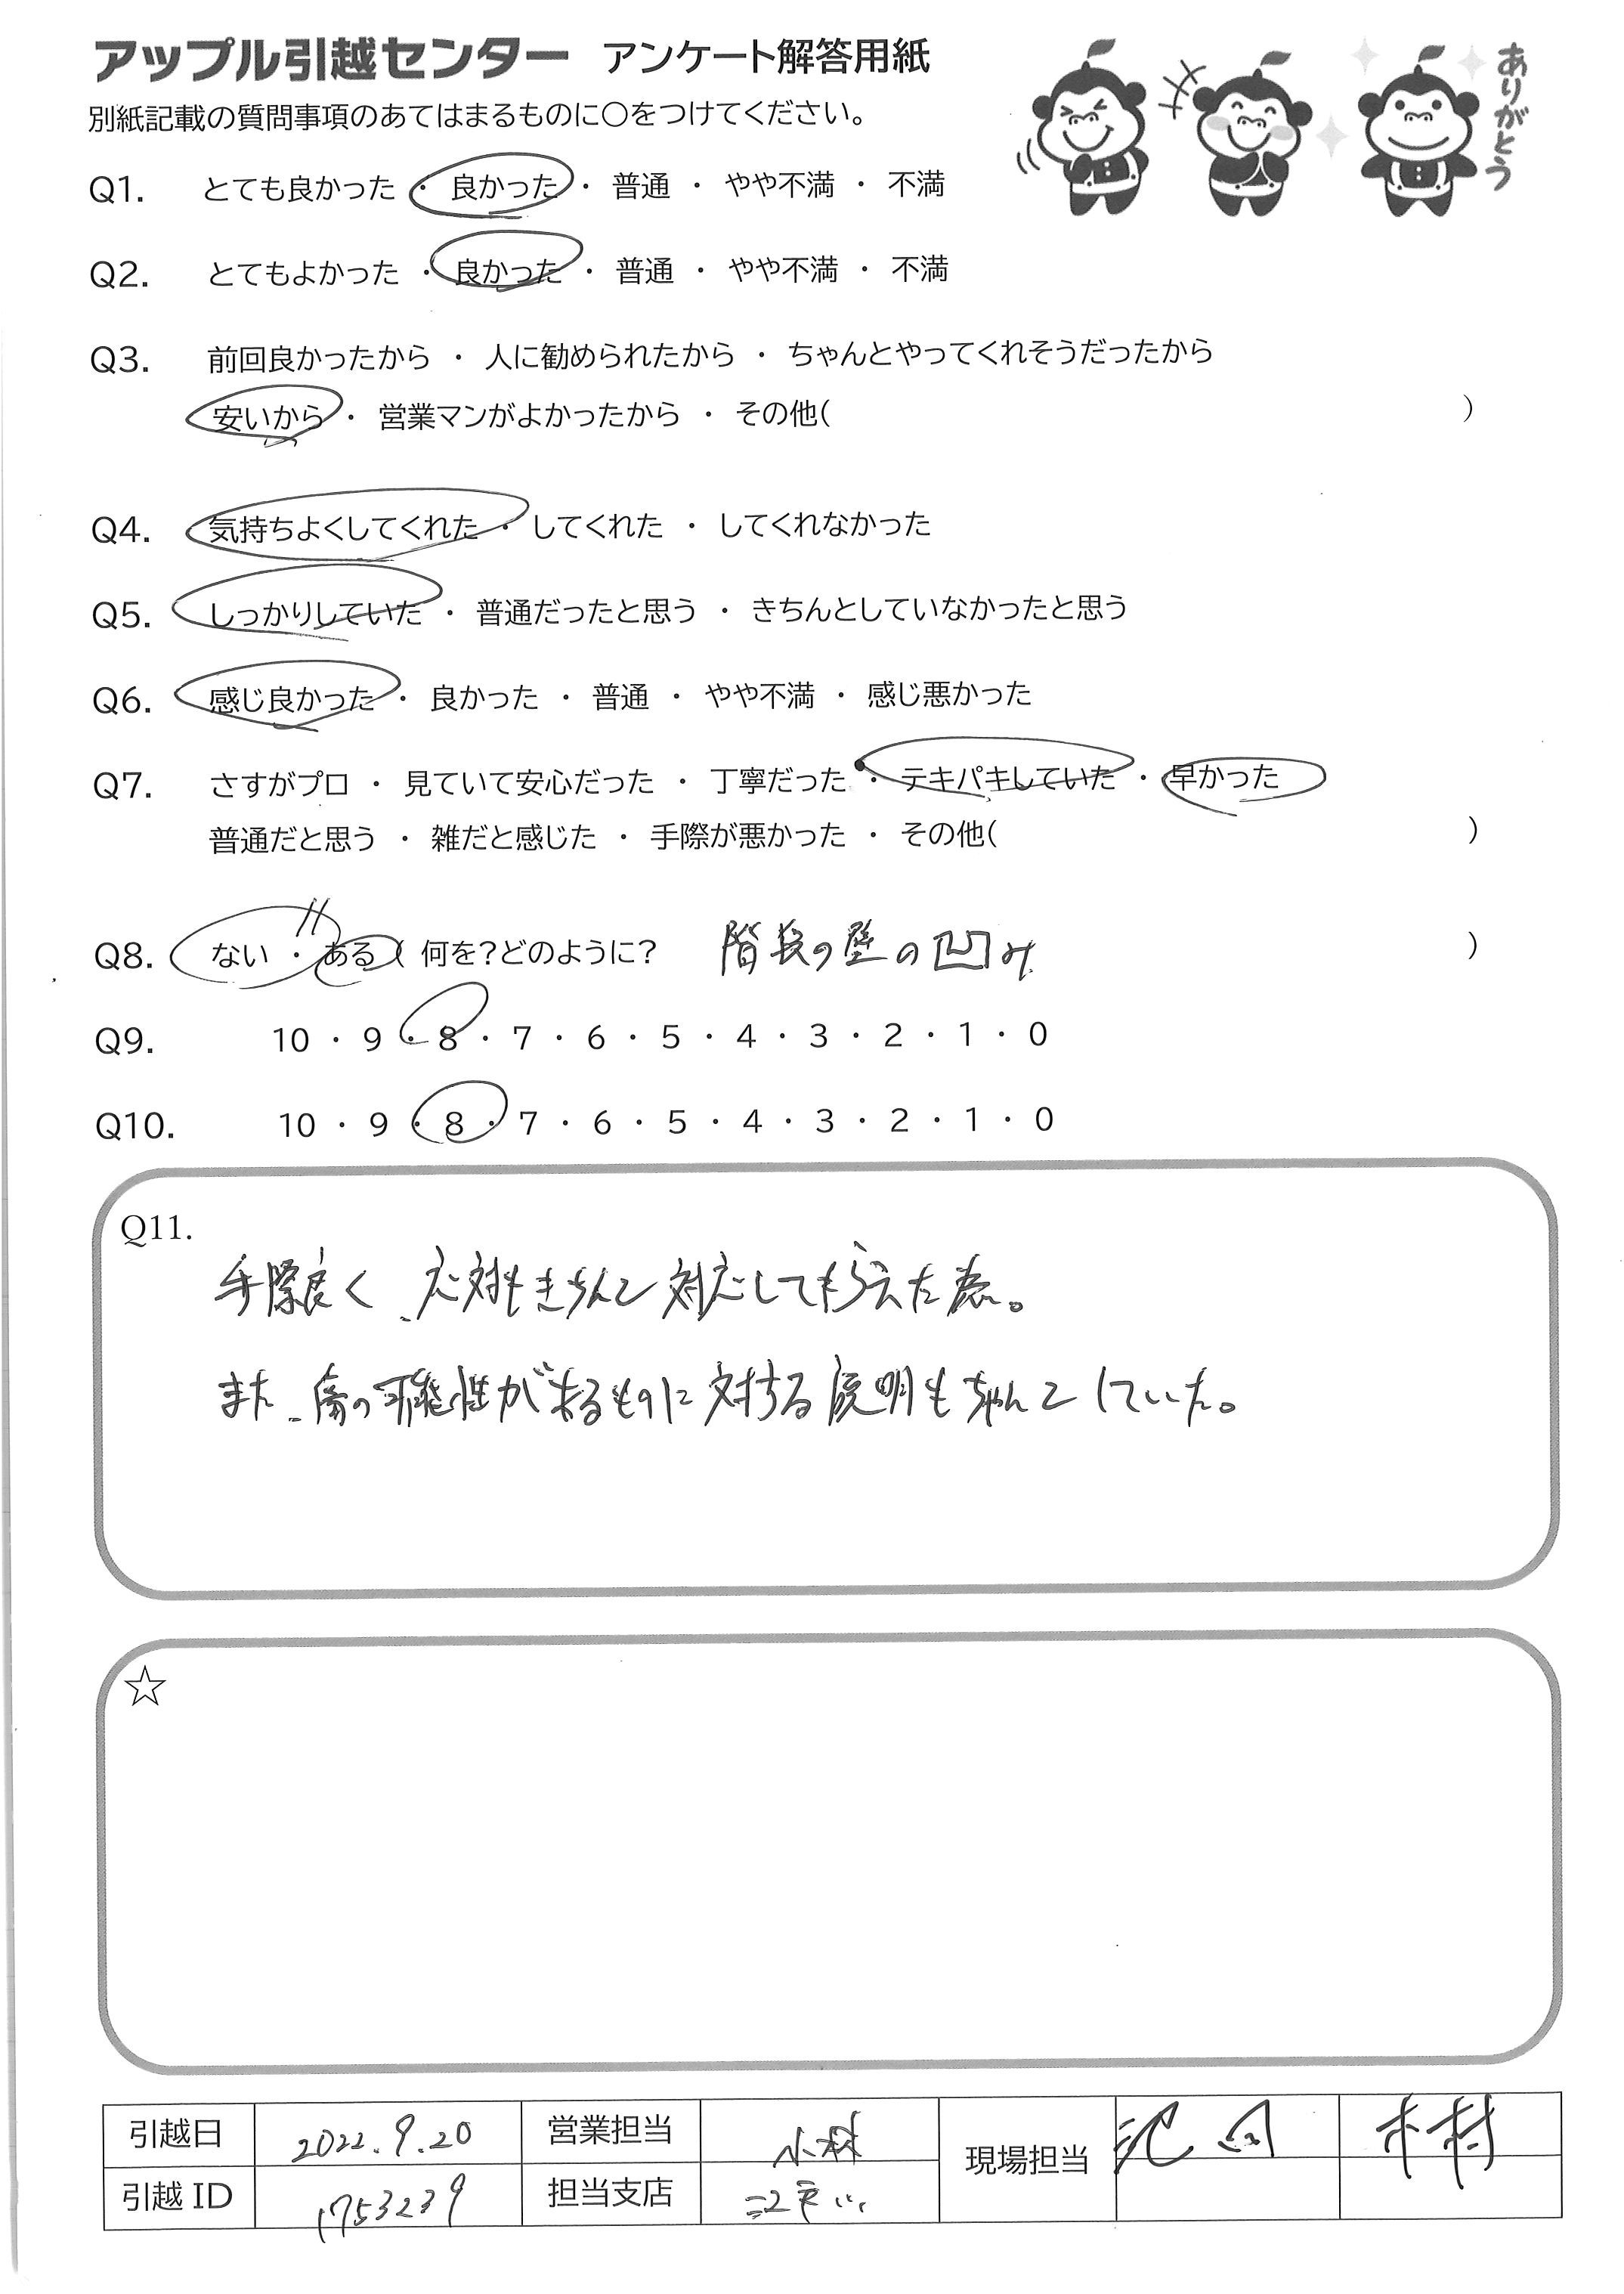 アップル引越センター アンケート解答用紙
別紙記載の質問事項のあてはまるものに〇をつけてください。
ありがとう
Q1. とても良かった ・ 良かった ・ 普通 ・ やや不満 ・ 不満
Q2. とてもよかった ・ 良かった ・ 普通 ・ やや不満 ・ 不満
Q3. 前回良かったから ・ 人に勧められたから ・ ちゃんとやってくれそうだったから
安いから ・ 営業マンがよかったから ・ その他( )
Q4. 気持ちよくしてくれた ・ してくれた ・ してくれなかった
Q5. しっかりしていた ・ 普通だったと思う ・ きちんとしていなかったと思う
Q6. 感じ良かった ・ 良かった ・ 普通 ・ やや不満 ・ 感じ悪かった
Q7. さすがプロ ・ 見ていて安心だった ・ 丁寧だった ・ テキパキしていた ・ 早かった
普通だと思う ・ 雑だと感じた ・ 手際が悪かった ・ その他( )
Q8. ない ・ ある ( 何を?どのように? 階段の壁の凹み )
Q9. 10 ・ 9 ・ 8 ・ 7 ・ 6 ・ 5 ・ 4 ・ 3 ・ 2 ・ 1 ・ 0
Q10. 10 ・ 9 ・ 8 ・ 7 ・ 6 ・ 5 ・ 4 ・ 3 ・ 2 ・ 1 ・ 0
Q11.
手際良く、応対もきちんと対応してもらえた為。
また、傷の可能性があるものに対する説明もちゃんとしていた。
☆
引越日 2022.9.20 営業担当 小林 現場担当 木村
引越ID 1753239 担当支店